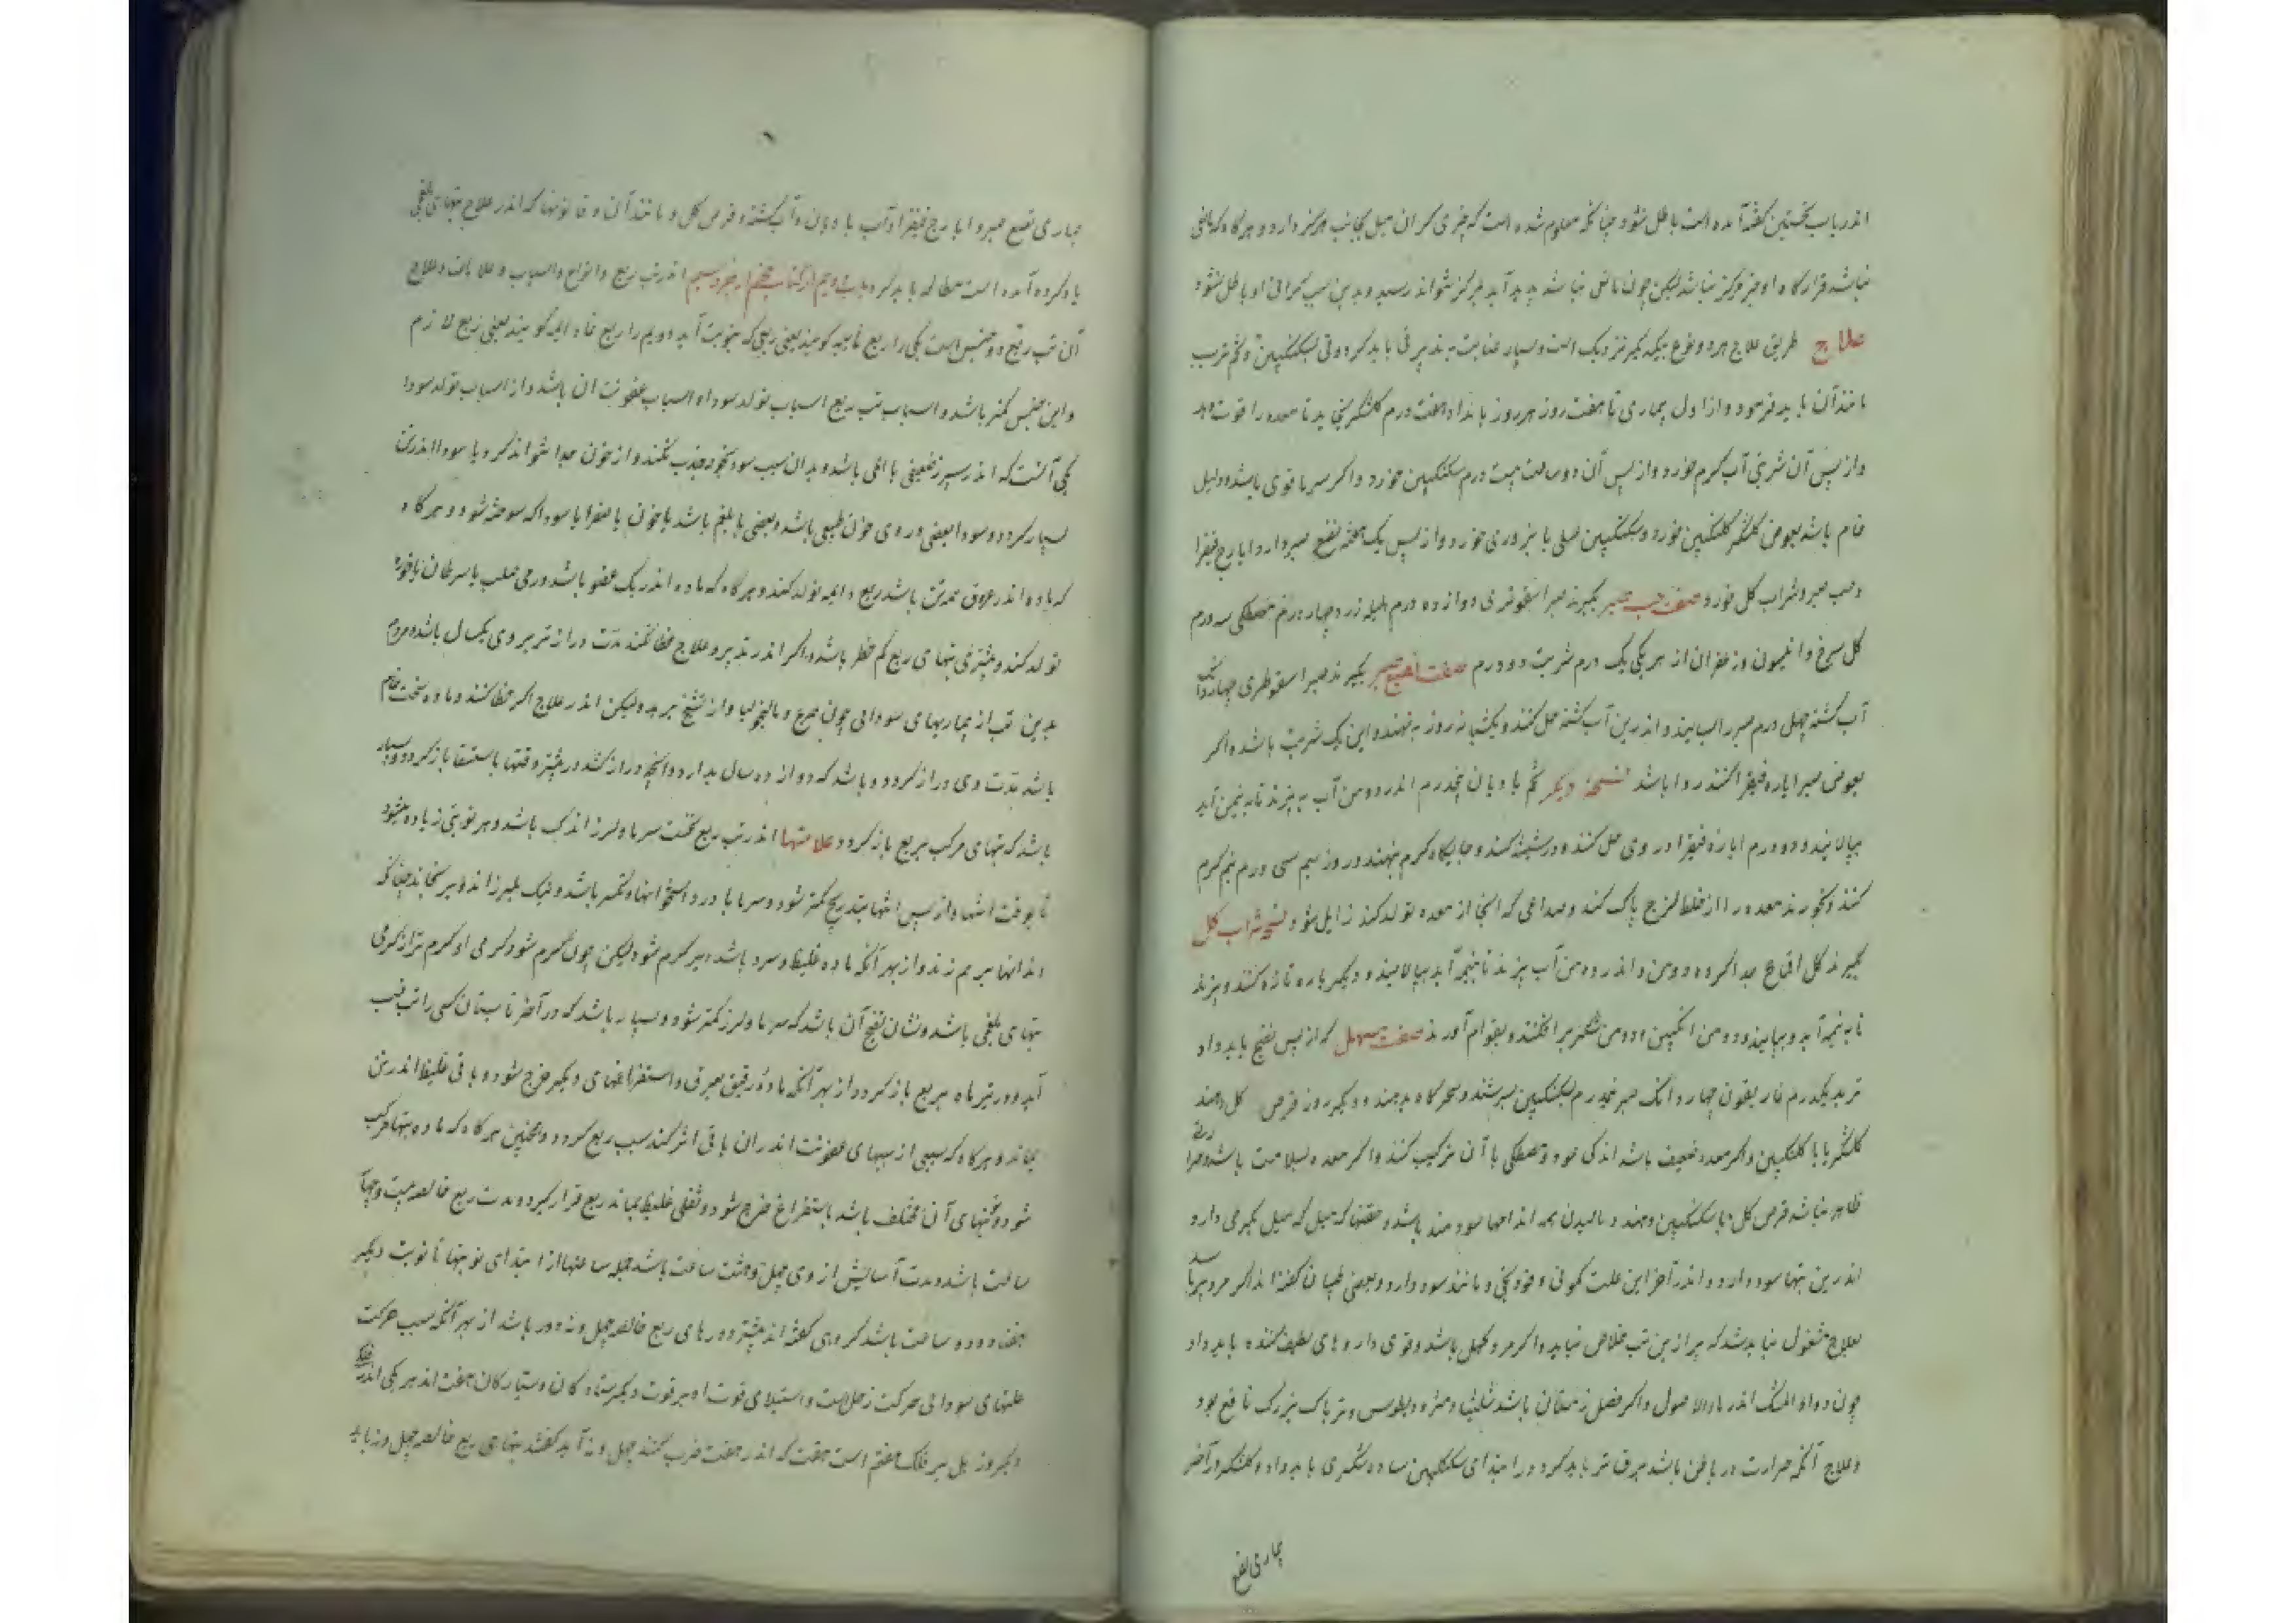 اندر باب نخستین گفته آمده است باطل نشود چنانکه معلوم شده است که چیزی گران میل بجانب مرکز دارد و هرگاه که مانعی
نباشد قرارگاه او جز مرکز نباشد لیکن چون مانعی نباشد پدید آید بمرکز نتواند رسید و بدین سبب گرانی او باطل نشود
علاج طریق علاج هر دو نوع بیکدیگر نزدیک است و بسیار عنایت به تدبیر قی باید کرد و قی بسکنگبین و تخم ترب
مانند آن باید فرمود و از اول بیماری تا هفت روز هر روز بامداد هفت درم گلشکر می‌دهد تا معده را قوت دهد
و از پس آن شربتی آب گرم خورد و از پس آن دو ساعت بیست درم سکنگبین خورد و اگر سرما قوی باشد و دلیل
خام باشد بعوض گلشکر گلنگبین خورد و سکنگبین عسلی یا بزوری خورد و از پس یک هفته نقیع صبر و ایارج فیقرا
و حب صبر و شراب گل خورد صفت حب صبر بگیرند صبر اسقوطری دوازده درم هلیله زرد چهار درم مصطکی سه درم
گل سرخ و انیسون و زعفران از هر یکی یک درم شربت دو درم صفت نقیع صبر بگیرند صبر اسقوطری چهار دانگ
آب کسنه چهل درم صبر را بسایند و اندرین آب کسنه حل کنند و یک شبانروز بنهند و این یک شربت باشد و اگر
بعوض صبر ایاره فیقرا کنند روا باشد نسخه دیگر تخم بادیان پنجدرم اندر دو من آب بپزند تا به نیمن آید
بپالایند و دو درم ایاره فیقرا در وی حل کنند و در شیشه کنند و جایگاه گرم بنهند و روز سیم سی درم نیم گرم
کنند و بخورند معده را از خلط لزج پاک کند و صداعی که از بخار معده تولد کند زایل شود نسخه شراب گل
بگیرند گل اقماع جدا کرده دو من و اندر ده من آب بپزند تا به نیمه آید بپالایند و دیگر باره تازه کنند و بپزند
تا به نیمه آید و بپالایند و دو من انگبین و دو من شکر برافکنند و بقوام آورند صفت مسهل که از پس نضج باید داد
تربد یکدرم غاریقون چهار دانگ صبر نیم‌درم بسکنگبین بسرشند و سحرگاه بدهند و دیگر روز قرص گل دهند
گلشکر یا با گلنگبین و اگر معده ضعیف باشد اندکی عود و مصطکی با آن ترکیب کنند و اگر معده بسلامت باشد و حرارتی
ظاهر نباشد قرص گل با سکنگبین دهند و مالیدن همه اندامها سودمند باشد و حقنها که میل که میل بگرمی دارد
اندرین تبها سود دارد و اندر آخر این علت کمونی و فودنجی و مانند سود دارد و بعضی طبیبان گفته‌اند اگر مرد پیر باشد
بعلاج مشغول نباید شد که پیر ازین تب خلاص نیابد و اگر مرد کهل باشد و قوی داروهای لطیف کننده باید داد
چون دواء المسک اندر ماء الاصول و اگر فصل زمستان باشد شلیثا و مثرودیطوس و تریاک بزرگ نافع بود
و علاج آنکه حرارت در باطن باشد برفق‌تر باید کرد و در ابتدای سکنگبین ساده شکری باید داد و گلشکر و آخر
بیماری نقیع
بیماری نقیع صبر و ایارج فیقرا و آب بادیان و آب کسنه و قرص گل و مانند آن و قانونها که اندر علاج تبهای بلغمی
یاد کرده آمده است مطالعه باید کرد اندر تب ربع و انواع و اسباب و علامات و علاج
آن تب ربع دو جنس است یکی را ربع نایبه گویند یعنی ربعی که بنوبت آید دویم را ربع دایمه گویند یعنی ربع لازم
و این جنس کمتر باشد و اسباب تب ربع اسباب تولد سودا و اسباب عفونت آن باشد و از اسباب تولد سودا
یکی آنست که اندر سپرز ضعیفی یا المی باشد و بدان سبب سودا بخود جذب نکند و از خون جدا نتواند کرد یا سودا اندر تن
بسیار گردد و سودا بعضی دردی خون طبیعی باشد و بعضی یا بلغم باشد یا خون یا صفرا یا سودا که سوخته شود و هرگاه
که ماده اندر عروق همه تن باشد ربع دایمه تولد کند و هرگاه که ماده اندر یک عضو باشد ورمی صلب یا سرطان یا خوره
تولد کند و بیشتری تبهای ربع کم خطر باشد و اگر اندر تدبیر و علاج خطا نکنند مدت درازتر بر وی یکسال باشد و مردم
بدین تب از بیماریهای سودائی چون صرع و مالیخولیا و از تشنج برهد ولیکن اندر علاج اگر خطا کنند و ماده سخت خام
باشد مدت وی دراز گردد و باشد که دوازده سال بدارد و آنچه دراز کشد در بیشتر وقتها باستسقا باز گردد و بسیار
باشد که تبهای مرکب بربع باز گردد علامتها اندر تب ربع نخست سرما و لرز اندک باشد و هر نوبتی زیاده میشود
تا بوقت انتها و از پس انتها بتدریج کمتر شود و سرما با درد استخوانها و تکسر باشد و نیک بلرزاند و برنجاند چنانکه
دندانها بر هم زند و از بهر آنکه ماده غلیظ و سرد باشد دیر گرم شود لیکن چون گرم شود گرمی او گرمتر از گرمی
تبهای بلغمی باشد و نشان نضج آن باشد که سرما و لرز کمتر شود و بسیار باشد که در آخر تابستان کسی را تب غب
آید و در تیر ماه بربع باز گردد از بهر آنکه ماده رقیق بعرق و استفراغهای دیگر خرج شود و باقی غلیظ اندر تن
بماند و هرگاه که سببی از سببهای عفونت اندر آن باقی اثر کند سبب ربع گردد و همچنین هرگاه که ماده تبها مرکب
شود و پختنهای آن مختلف باشد باستفراغ خرج شود و ثفلی غلیظ بماند ربع قرار گیرد و مدت ربع خالصه بیست و چهار
ساعت باشد و مدت آسایش از وی چهل و هشت ساعت باشد جمله ساعتها از ابتدای نوبتها تا نوبت دیگر
هفتاد و دو ساعت باشد گروهی گفته‌اند بیشتر دورهای ربع خالصه چهل و نه دور باشد از بهر آنکه سبب حرکت
علتهای سودائی حرکت زحلست و استیلای قوت او بر قوت دیگر ستارگان و ستارگان هفت‌اند هر یکی اندر فلکی
دیگر و زحل بر فلک هفتم است هفت که اندر هفت ضرب کنند چهل و نه آید گفتند تبهای ربع خالصه چهل و نه باید